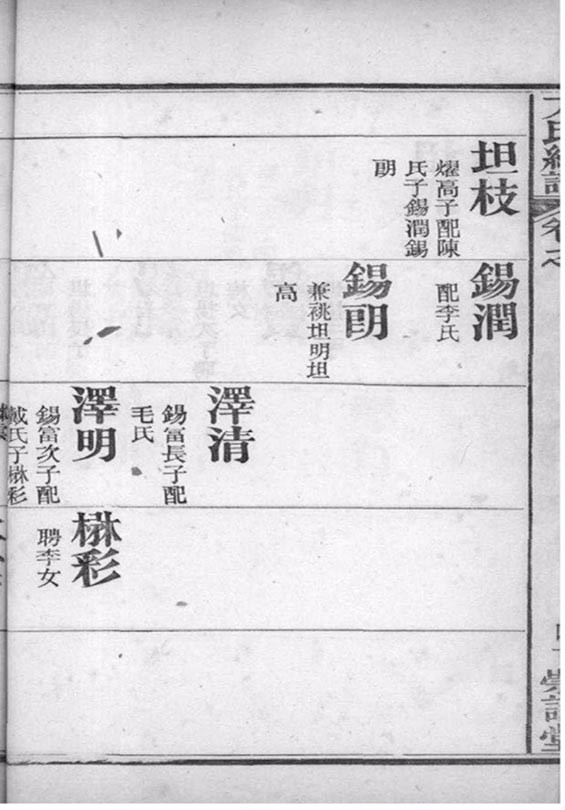 坦枝
燿高子配陳
氏子錫潤錫
朙
錫潤
配李氏
錫朙
兼祧坦明坦
高
澤清
錫富長子配
毛氏
澤明
錫富次子配
戴氏子楙彩
楙彩
聘李女